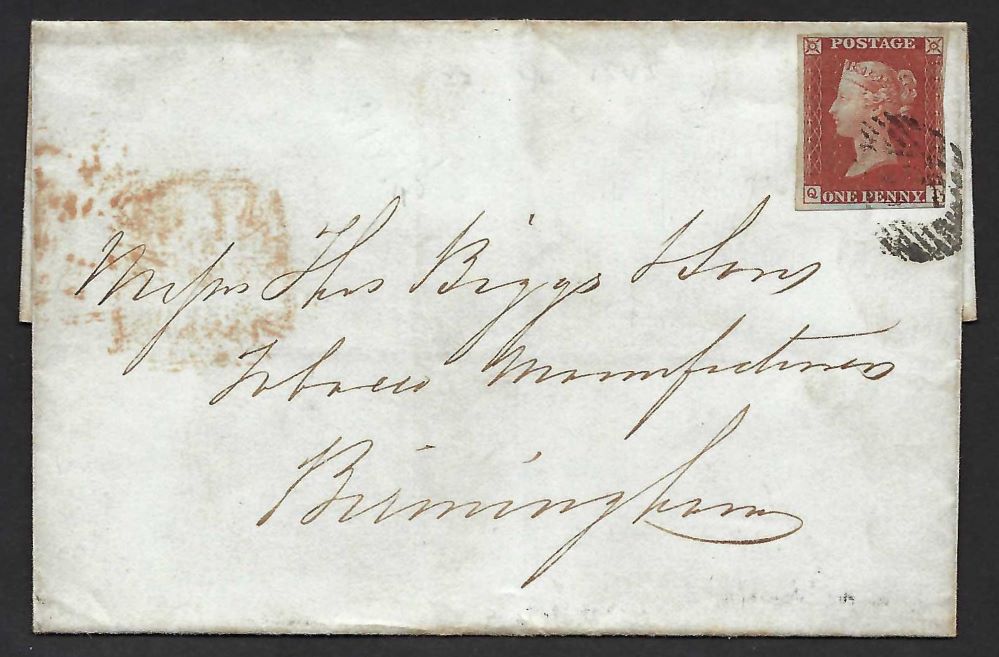 POSTAGE
Q ONE PENNY
Messrs Thos Biggs & Sons
Tobacco Manufacturers
Birmingham